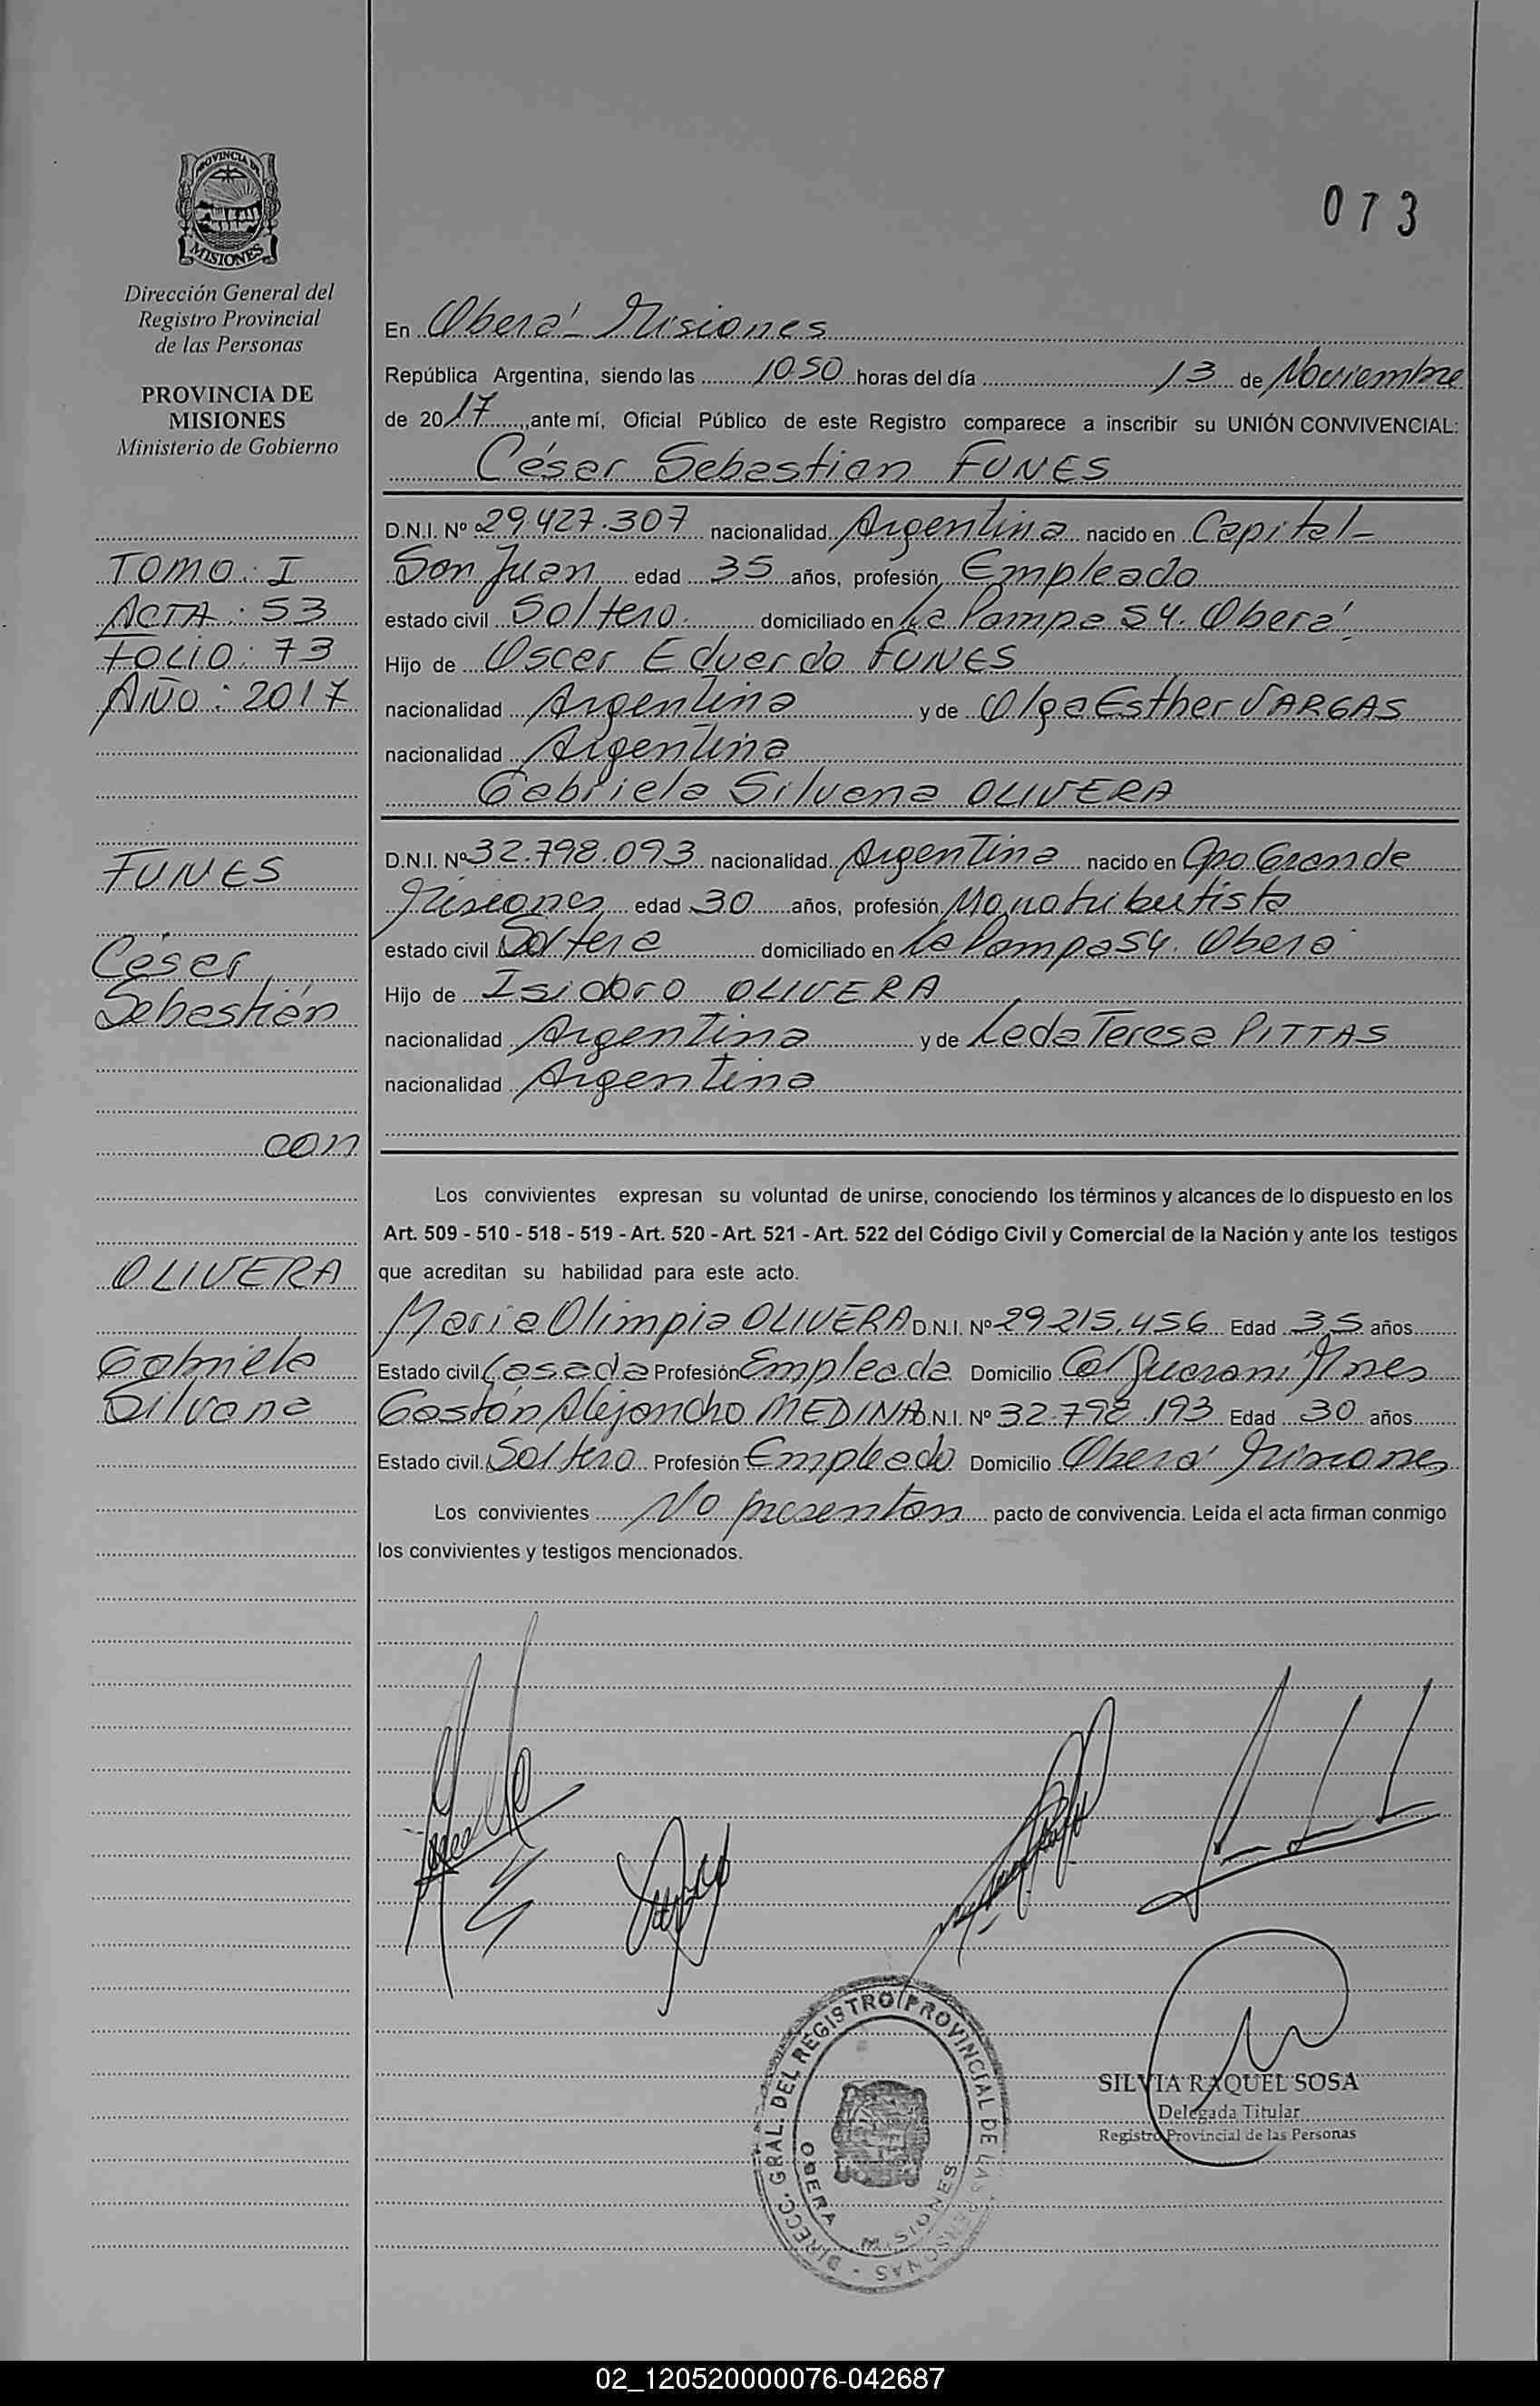 073
PROVINCIA DE
MISIONES
Dirección General del
Registro Provincial
de las Personas
PROVINCIA DE
MISIONES
Ministerio de Gobierno
TOMO: I
ACTA: 53
FOLIO: 73
AÑO: 2017
FUNES
César
Sebastián
con
OLIVERA
Gabriela
Silvana
En Oberá - Misiones
República Argentina, siendo las 10:50 horas del día 13 de Noviembre
de 2017, ante mí, Oficial Público de este Registro comparece a inscribir su UNIÓN CONVIVENCIAL:
César Sebastian FUNES
D.N.I. Nº 29.427.307 nacionalidad Argentina nacido en Capital -
San Juan edad 35 años, profesión Empleado
estado civil Soltero. domiciliado en La Pampa 54. Oberá.
Hijo de Oscar Eduardo FUNES
nacionalidad Argentina y de Olga Esther VARGAS
nacionalidad Argentina
Gabriela Silvana OLIVERA
D.N.I. Nº 32.798.093 nacionalidad Argentina nacido en Cpo. Grande
Misiones edad 30 años, profesión Monotributista
estado civil Soltera domiciliado en La Pampa 54. Oberá
Hijo de Isidoro OLIVERA
nacionalidad Argentina y de Leda Teresa PITTAS
nacionalidad Argentina
Los convivientes expresan su voluntad de unirse, conociendo los términos y alcances de lo dispuesto en los
Art. 509 - 510 - 518 - 519 - Art. 520 - Art. 521 - Art. 522 del Código Civil y Comercial de la Nación y ante los testigos
que acreditan su habilidad para este acto.
Maria Olimpia OLIVERA D.N.I. Nº 29.215.456 Edad 35 años
Estado civil Casada Profesión Empleada Domicilio Cel Guarani Mnes
Gastón Alejandro MEDINA D.N.I. Nº 32.798.193 Edad 30 años
Estado civil Soltero Profesión Empleado Domicilio Oberá Misiones
Los convivientes No presentan pacto de convivencia. Leída el acta firman conmigo
los convivientes y testigos mencionados.
DIRECC. GRAL. DEL REGISTRO PROVINCIAL DE LAS PERSONAS
OBERA MISIONES
SILVIA RAQUEL SOSA
Delegada Titular
Registro Provincial de las Personas
02_120520000076-042687